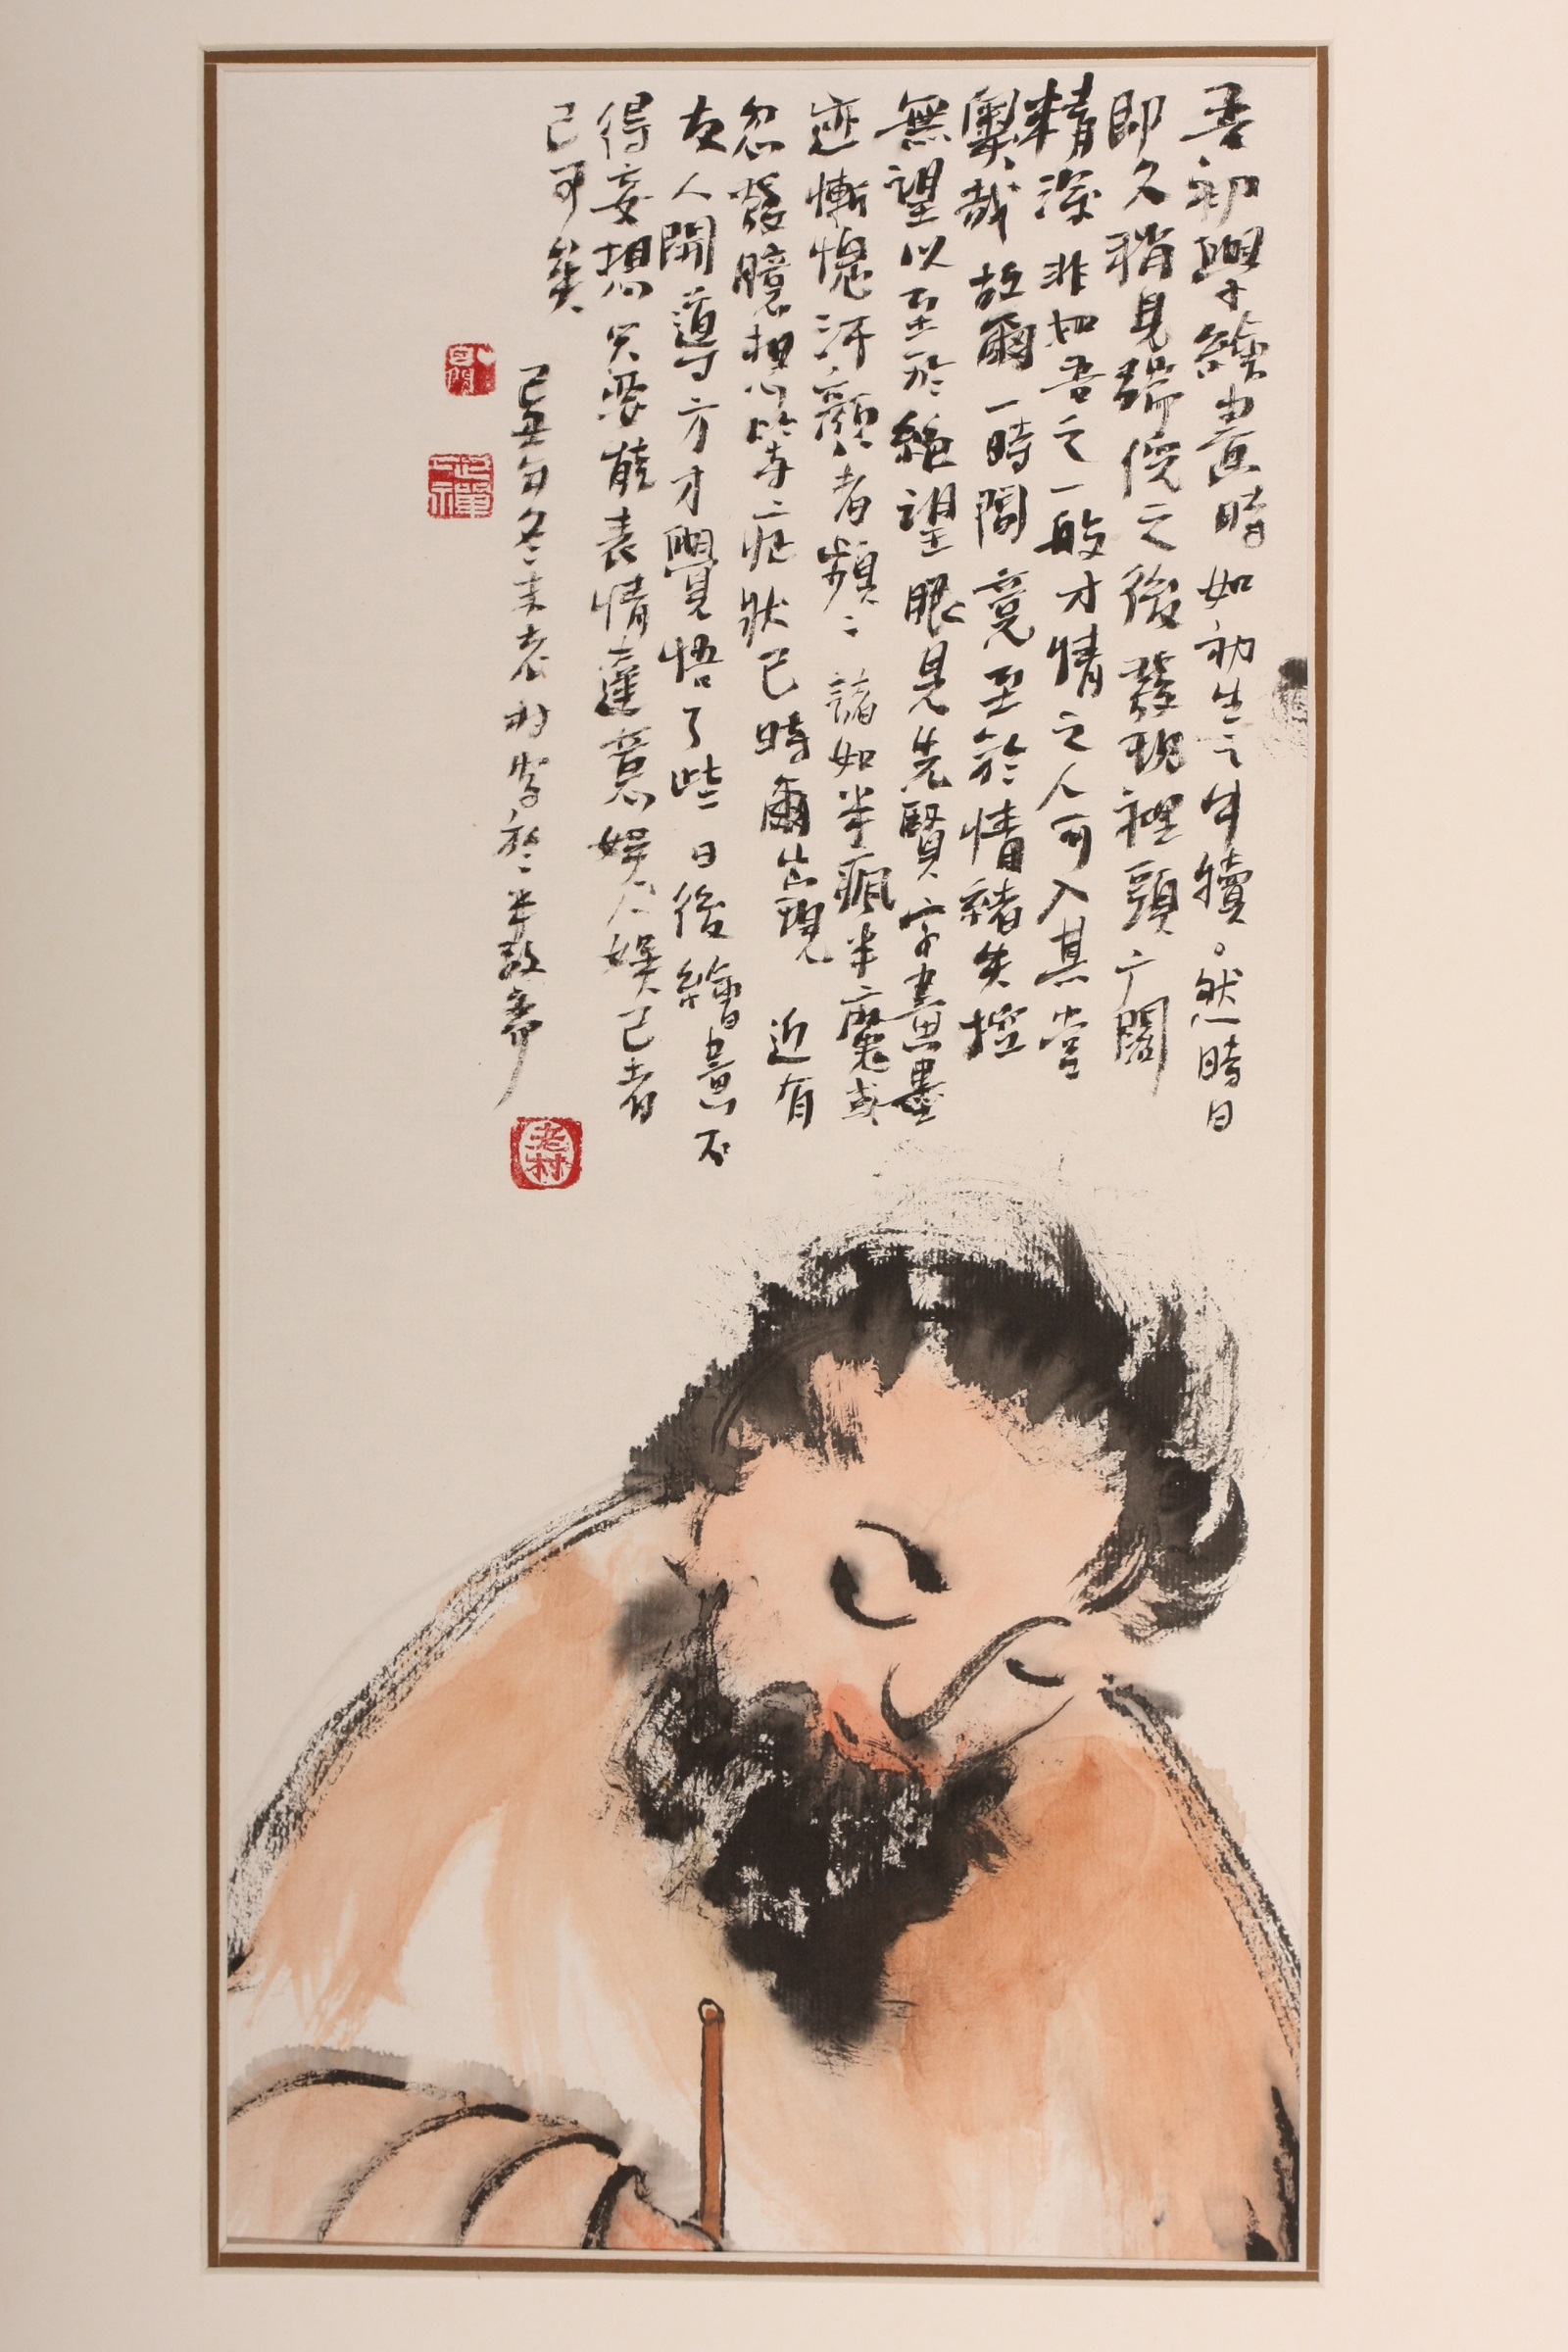 吾初學繪畫時如初生之牛犢。然時日
即久稍見端倪之後發現裡頭广闊
精深非如吾之一般才情之人可入其堂
奧哉故爾一時間竟至於情緒失控
無望以至於絕望眼見先賢字畫墨
迹慚愧汗顏者頻：諸如半瘋半魔或
忽發臆想等症狀已時爾出現近有
友人開導方才覺悟了些日後繪畫不
得妄想只要能表情達意娛人娛己者
已可矣
己丑年冬末老村字於半敬齋
老村